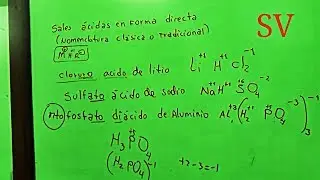 Sales ácidas en forma directa
SV
(Nomenclatura clásica o tradicional)
cloruro acido de litio Li⁺¹ H⁺¹ Cl₂⁻¹
Sulfato ácido de sodio Na H⁺¹ S⁺⁶O₄⁻²
orto fosfato diácido de Aluminio Al₁⁺³(H₂⁺¹ P⁺⁵O₄⁻³)₃⁻¹
H₃PO₄
(H₂PO₄)⁻¹ +2-3=-1